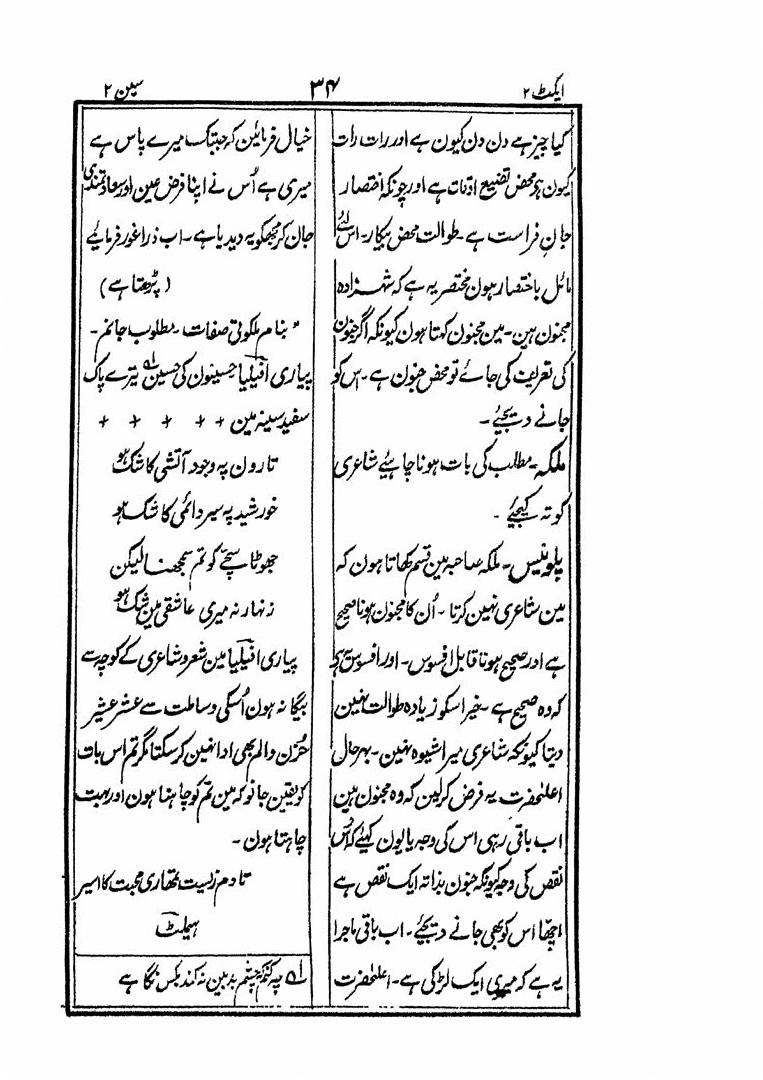 ایکٹ ۲
۳۴
سین ۲
کیا چیز ہے دن دن کیون ہے اور رات رات
کیون ہو محض تضیع اوقات ہے اور چونکہ اختصار
جان فراست ہے۔ طوالت محض بیکار۔ اس لئے
مائل باختصار ہون مختصر یہ ہے کہ شہزادہ
مجنون ہین۔ مین مجنون کہتا ہون کیونکہ اگر جنون
کی تعریف کی جائے تو محض جنون ہے۔ اس کو
جانے دیجئے۔
ملکہ۔ مطلب کی بات ہونا چاہئیے شاعری
کو تہ کیجئے۔
پلونیس۔ ملکہ صاحبہ مین قسم کھاتا ہون کہ
مین شاعری نہین کرتا۔ اُن کا مجنون ہونا صحیح
ہے اور صحیح ہونا قابل افسوس۔ اور افسوس ہے
کہ وہ صحیح ہے۔ خیر اسکو زیادہ طوالت نہین
دیتا کیونکہ شاعری میرا شیوہ نہین۔ بہرحال
اعلٰحضرت یہ فرض کرلین کہ وہ مجنون ہین
اب باقی رہی اس کی وجہ یا یون کہئے کہ اُس
نقص کی وجہ کیونکہ جنون بذاتہ ایک نقص ہے
اچھا اس کو بھی جانے دیجئے۔ اب باقی ماجرا
یہ ہے کہ میری ایک لڑکی ہے۔ اعلٰحضرت
خیال فرمائین کہ جبتک میرے پاس ہے
میری ہے اُس نے اپنا فرض عین اور سعادتمندی
جان کر مجھکو یہ دیدیا ہے۔ اب ذرا غور فرمائیے
(پڑھتا ہے)
"بنام ملکوتی صفات۔ مطلوب جانم۔
پیاری افیلیا حسینون کی حسین ۱؎ تیرے پاک
سفید سینہ مین + + + + + +
تارون پہ وجود آتشی کا شک ہو
خورشید پہ سیر دائمی کا شک ہو
جھوٹا سچے کو تم سمجھنا لیکن
زنہار نہ میری عاشقی مین شک ہو
پیاری افیلیا مین شعر و شاعری کے کوچہ سے
بیگانہ ہون اُسکی وساطت سے عشر عشیر
حُزن والم بھی ادا نہین کرسکتا مگر تم اس بات
کو یقین جانو کہ مین تم کو چاہتا ہون اور بہت
چاہتا ہون۔
تادم زیست تمھاری محبت کا اسیر
ہیملٹ
۱؎ چہ کنم کہ چشم بد بین نہ کند بکس نگاہے